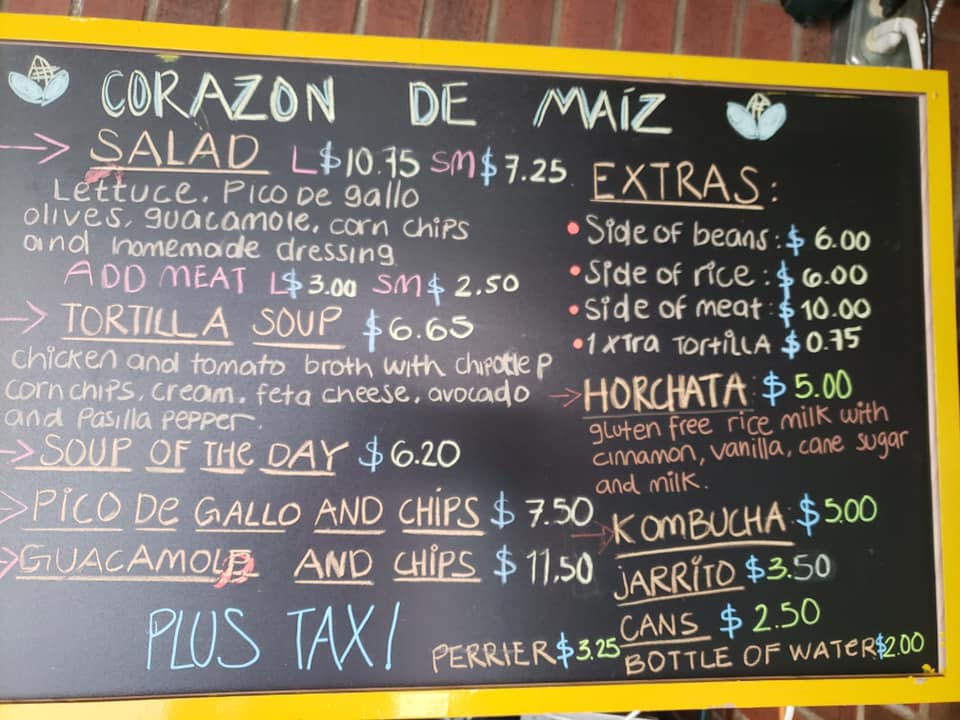 CORAZON DE MAÍZ
SALAD L$10.75 SM$7.25
Lettuce, Pico De gallo
olives, guacamole, corn chips
and homemade dressing
ADD MEAT L$3.00 SM$ 2.50
TORTILLA SOUP $6.65
chicken and tomato broth with chipotle P
corn chips, cream, feta cheese, avocado
and Pasilla Pepper.
SOUP OF THE DAY $6.20
PICO De GALLO AND CHIPS $ 7.50
GUACAMOLE AND CHIPS $ 11,50
PLUS TAX!
EXTRAS:
• Side of beans: $ 6.00
• Side of rice: $ 6.00
• Side of meat: $ 10.00
• 1 xTra TorTiLLA $0.75
HORCHATA: $ 5.00
gluten free rice milk with
cinnamon, vanilla, cane sugar
and milk.
KOMBUCHA $500
JARRITO $3.50
CANS $ 2.50
PERRIER $3.25
BOTTLE OF WATER $2.00